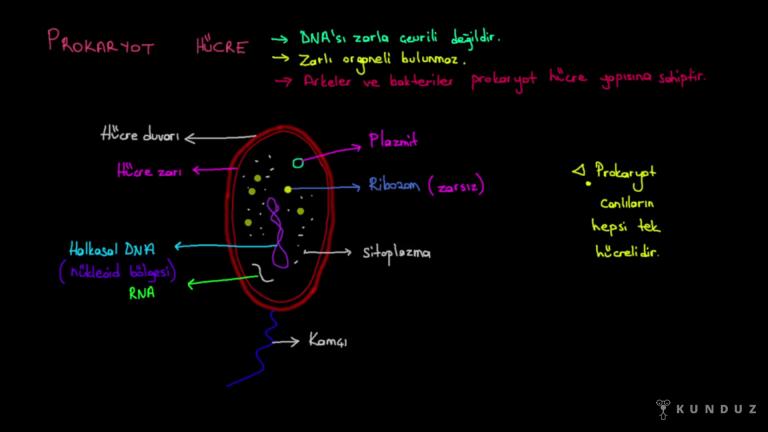 PROKARYOT HÜCRE
→ DNA'sı zarla çevrili değildir.
→ Zarlı organeli bulunmaz.
→ Arkeler ve bakteriler prokaryot hücre yapısına sahiptir.
Hücre duvarı
Plazmit
Hücre zarı
Ribozom (zarsız)
Prokaryot
canlıların
hepsi tek
hücrelidir.
Halkasal DNA
(nükleoid bölgesi)
Sitoplazma
RNA
Kamçı
KUNDUZ